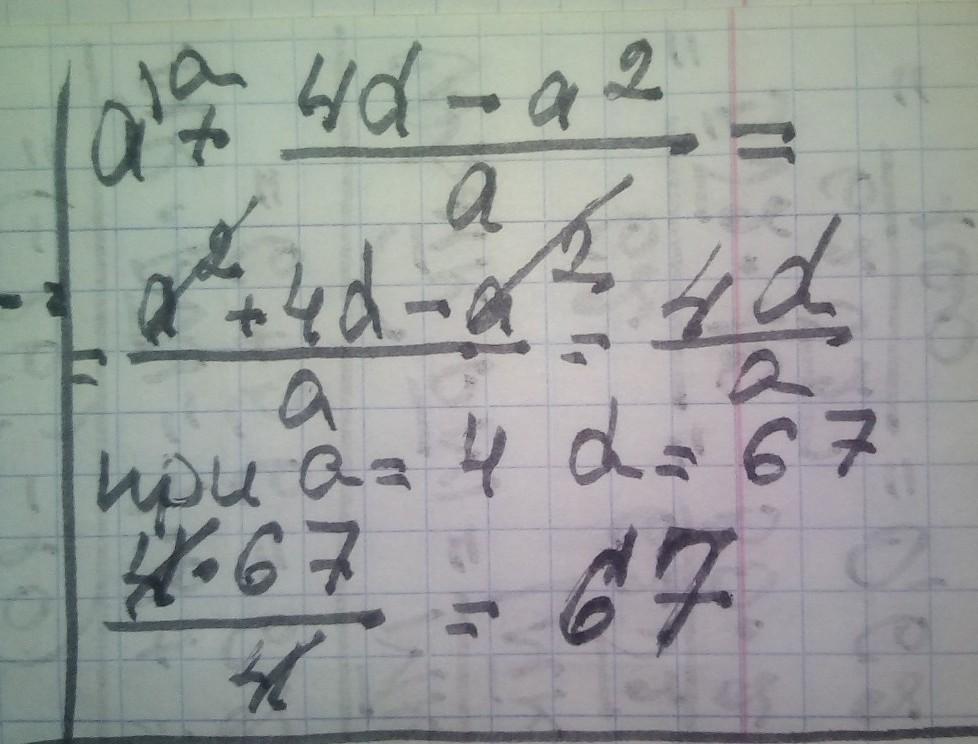 a^{\a} + \frac{4d - a^2}{a} =
= \frac{a^2 + 4d - a^2}{a} = \frac{4d}{a}
при a = 4 d = 67
\frac{4 \cdot 67}{4} = 67